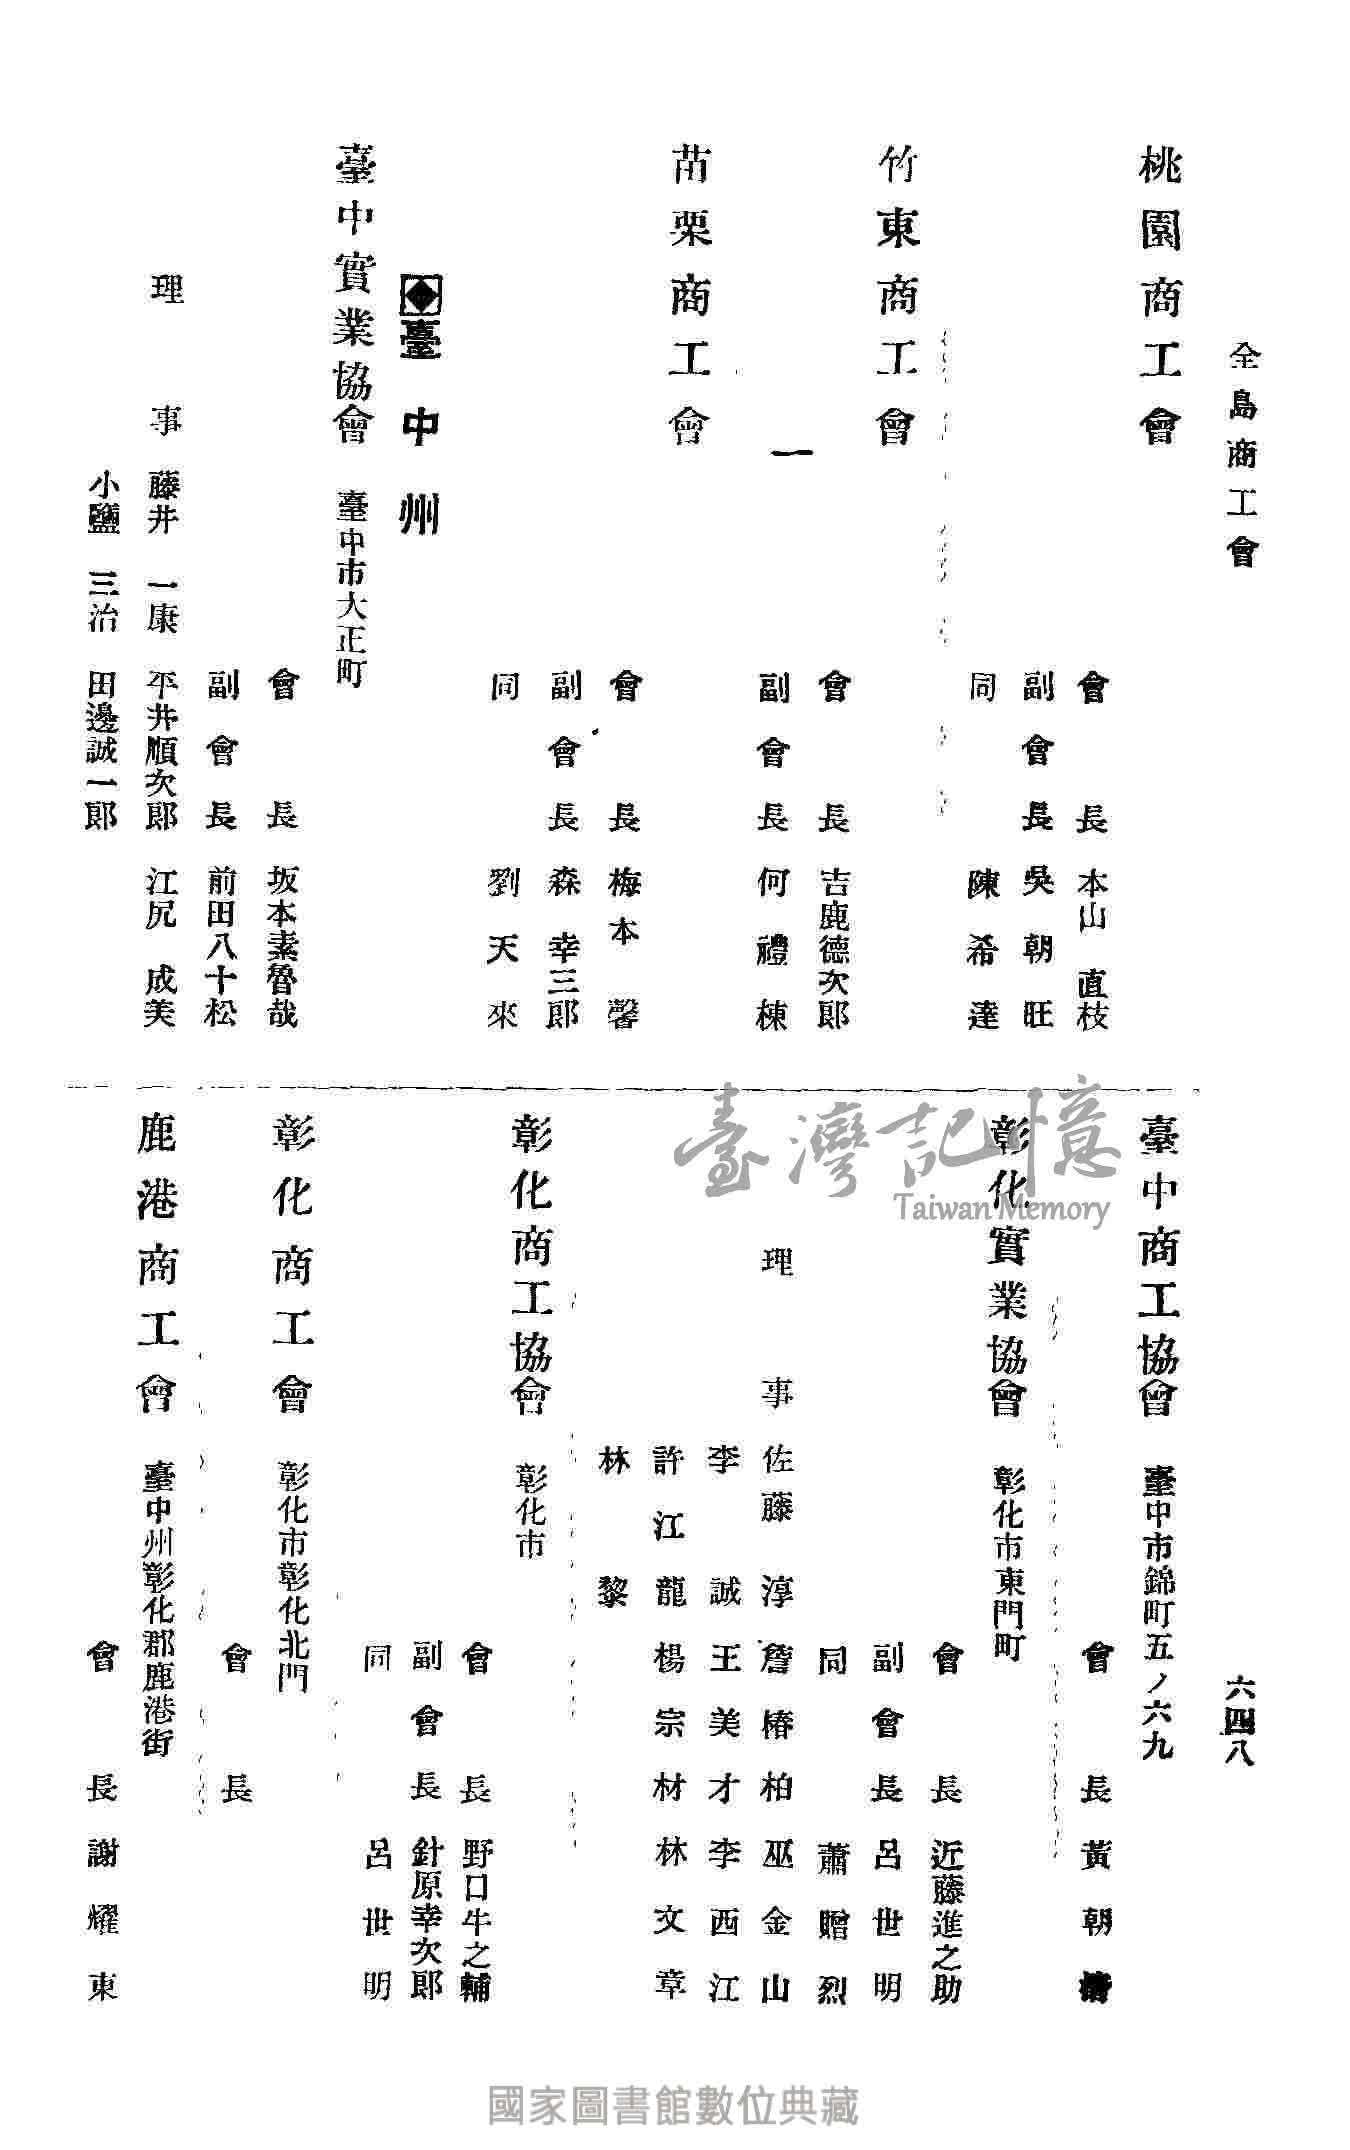 全島商工會
六四八
桃園商工會
會長 本山 直枝
副會長 吳朝旺
同 陳希達
竹東商工會
會長 吉鹿德次郎
副會長 何禮棟
苗栗商工會
會長 梅本馨
副會長 森 幸三郎
同 劉天來
臺中州
臺中實業協會 臺中市大正町
會長 坂本素魯哉
副會長 前田八十松
理事 藤井 一康 平井順次郎 江尻 成美
小鹽 三治 田邊誠一郎
臺中商工協會 臺中市錦町五ノ六九
會長 黃朝清
彰化實業協會 彰化市東門町
會長 近藤進之助
副會長 呂世明
同 蕭贈烈
理事 佐藤淳 詹椿柏 巫金山
李誠 王美才 李西江
許江龍 楊宗材 林文章
林黎
彰化商工協會 彰化市
會長 野口牛之輔
副會長 針原幸次郎
同 呂世明
彰化商工會 彰化市彰化北門
會長
鹿港商工會 臺中州彰化郡鹿港街
會長 謝耀東
臺灣記憶
Taiwan Memory
國家圖書館數位典藏